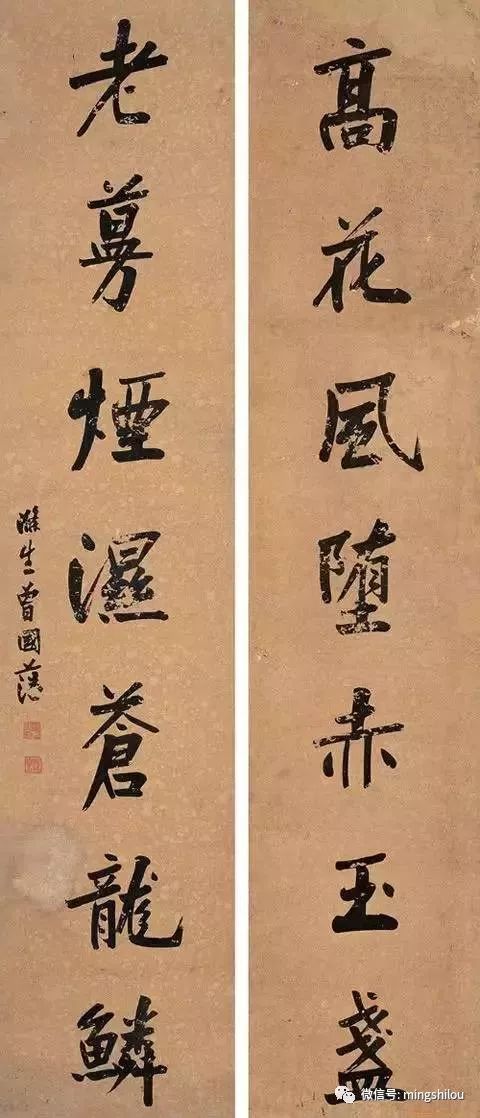 髙花風堕赤玉盞
老蔓煙濕蒼龍鱗
滌生曾國藩
微信号: mingshilou